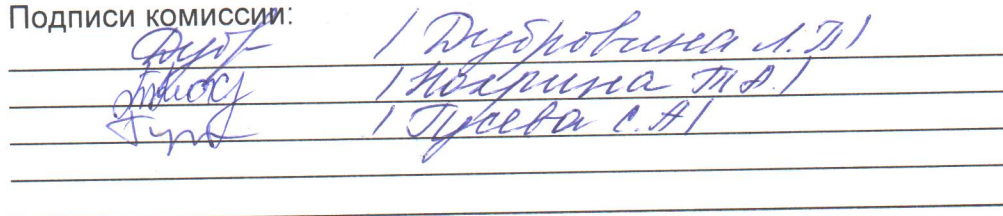 Подписи комиссии:
/ Дубровина Л.П/
/ Нохрина Т.А./
/ Гусева С.А/